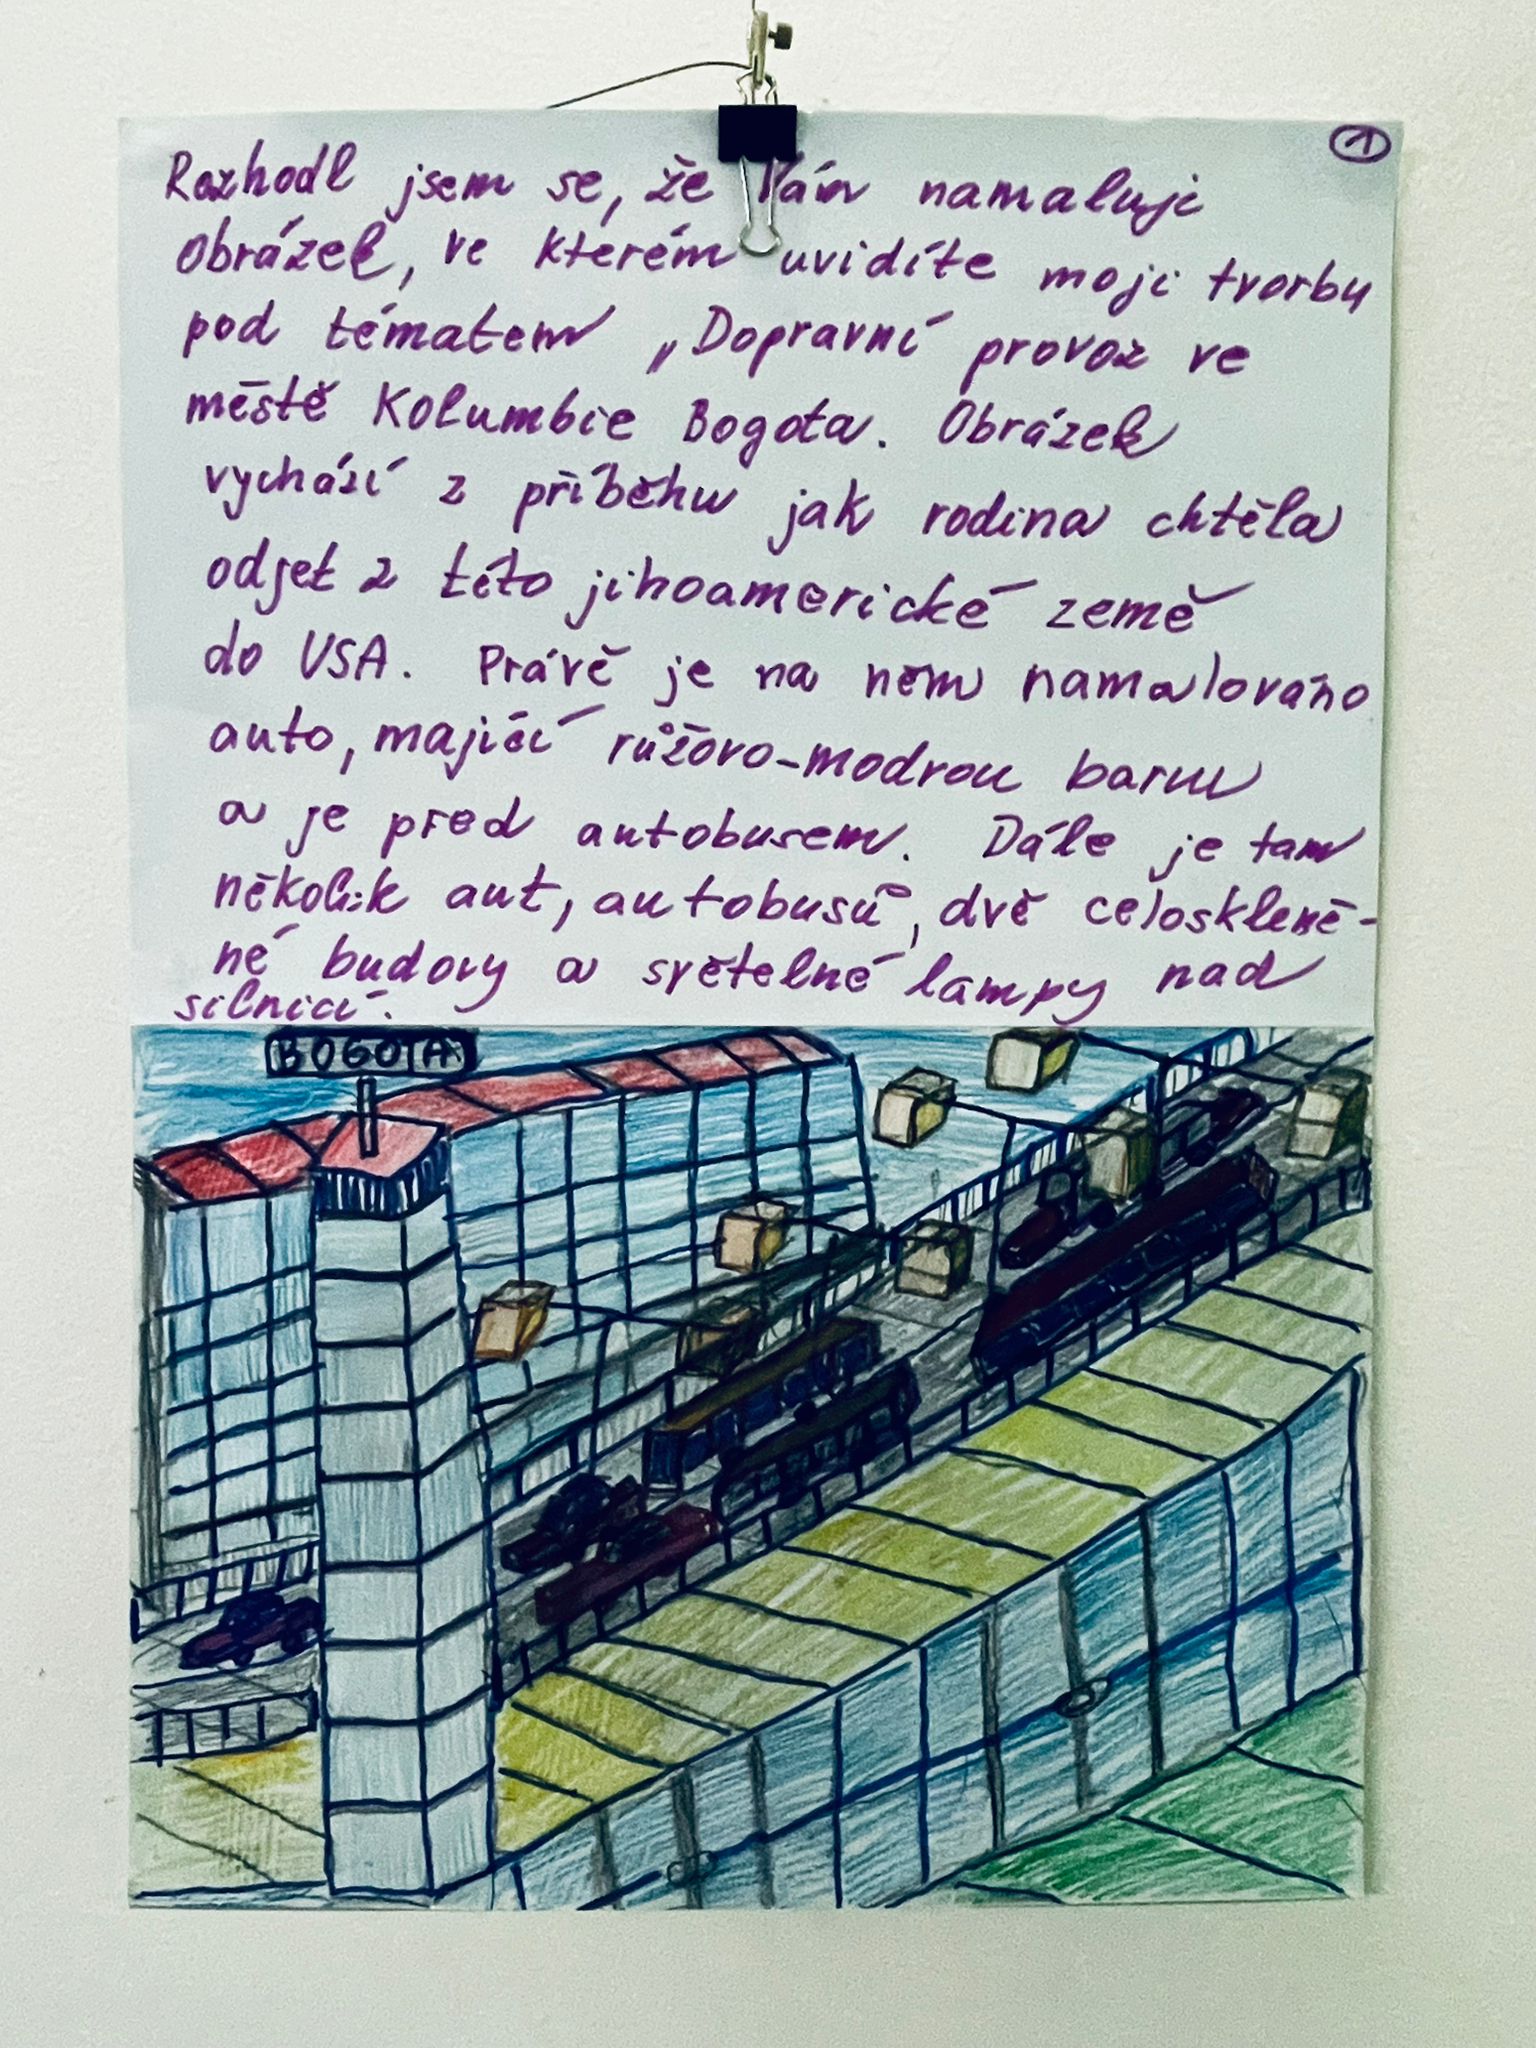 1
Rozhodl jsem se, že Vám namaluji
obrázek, ve kterém uvidíte moji tvorbu
pod tématem „Dopravní provoz ve
městě Kolumbie Bogota. Obrázek
vychází z příběhu jak rodina chtěla
odjet z této jihoamerické země
do USA. Právě je na něm namalováno
auto, mající růžovo-modrou barvu
a je před autobusem. Dále je tam
několik aut, autobusů, dvě celoskleně-
né budovy a světelné lampy nad
silnicí.
BOGOTA